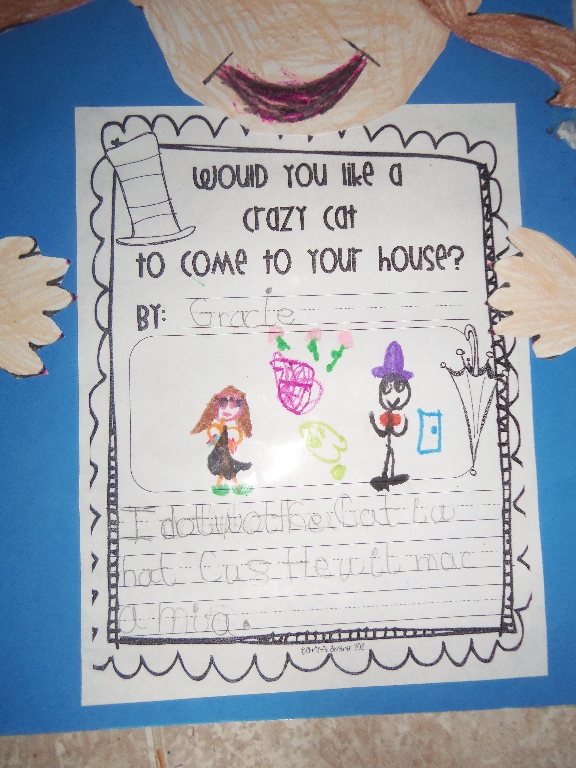 Would You like a
crazy cat
to come to Your house?
By: Gracie
I dot wot the Cat La
hat Cus He will mac
a miss.